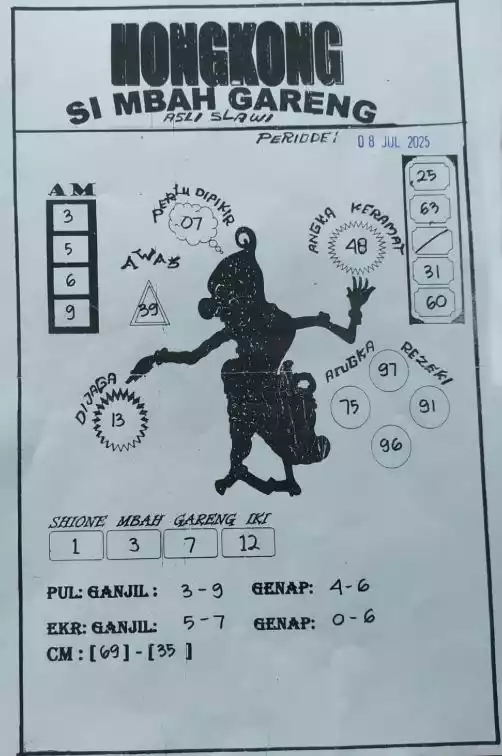 HONGKONG
SI MBAH GARENG
ASLI SLAWI
PERIODE: 08 JUL 2025
AM
3
5
6
9
PERLU DIPIKIR
07
AWAS
39
ANGKA KERAMAT
48
25
63
31
60
DIJAGA
13
ANGKA REZEKI
97
75
91
96
SHIONE MBAH GARENG IKI
1 3 7 12
PUL: GANJIL: 3-9 GENAP: 4-6
EKR: GANJIL: 5-7 GENAP: 0-6
CM : [69] - [35 ]